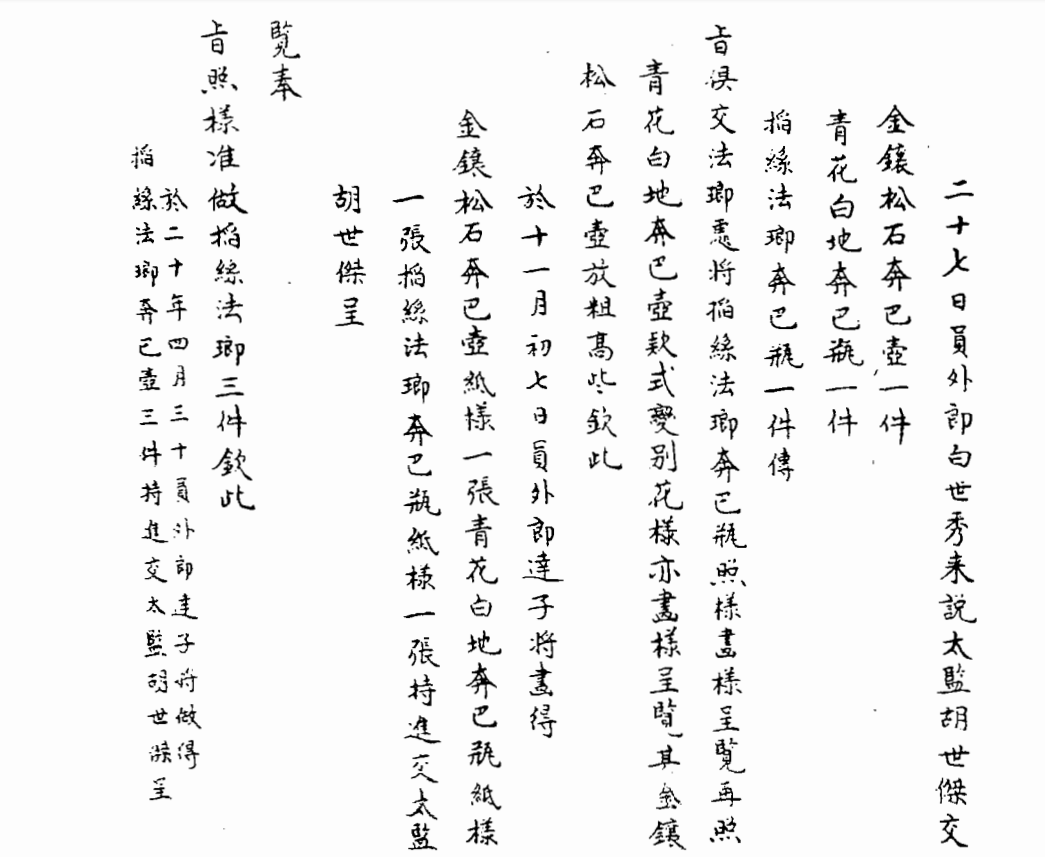 二十七日員外郎白世秀来説太監胡世傑交
金鑲松石奔巴壺一件
青花白地奔巴瓶一件
掐絲法瑯奔巴瓶一件傳
旨俱交法瑯處将掐絲法瑯奔巴瓶照樣畫樣呈覧再照
青花白地奔巴壺欵式變别花樣亦畫樣呈覧其金鑲
松石奔巴壺放粗高些欽此
於十一月初七日員外郎達子将畫得
金鑲松石奔巴壺紙樣一張青花白地奔巴瓶紙樣
一張掐絲法瑯奔巴瓶紙様一張持進交太監
胡世傑呈
覧奉
旨照樣准做掐絲法瑯三件欽此
於二十年四月三十員外郎達子将做得
掐絲法瑯奔巴壺三件持進交太監胡世傑呈